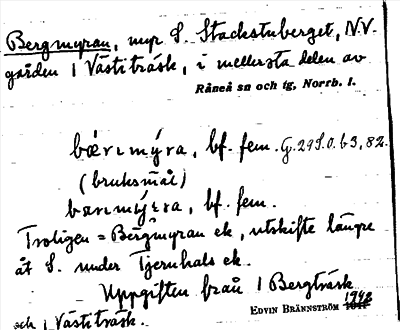 Bergmyran, myr S. Stackstuberget, N.V.
gården 1 Västiträsk, i mellersta delen av
Råneå sn och tg, Norrb. l.
bærımýra, bf. fem. G. 29 S. 0. b 3, 82.
(bruksmål)
bærımýra, bf. fem.
Troligen = Bergmyran ek, utskifte längre
åt S. under Tjernhals ek.
Uppgiften från 1 Bergträsk
och 1 Västiträsk.
EDVIN BRÄNNSTRÖM 1942